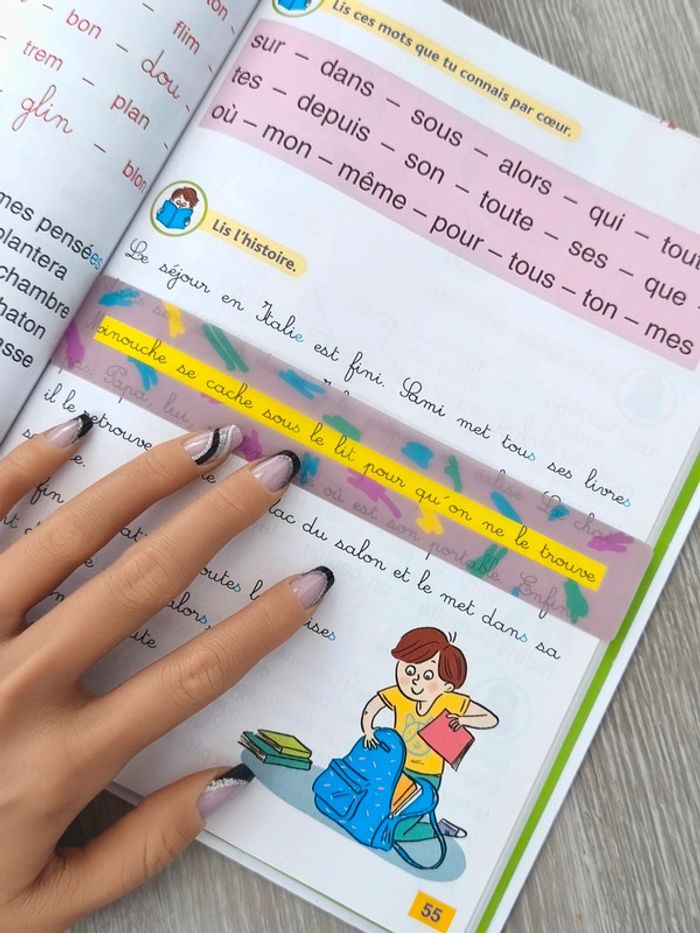 ton
– bon – flim
– trem – dou
glin – plan
– blon
mes pensées
plantera
chambre
chaton
asse
Lis ces mots que tu connais par cœur.
sur – dans – sous – alors – qui – tout
tes – depuis – son – toute – ses – que
où – mon – même – pour – tous – ton – mes
Lis l'histoire.
Le séjour en Italie est fini. Sami met tous ses livres
dans sa valise. Le chat
pinouche se cache sous le lit pour qu'on ne le trouve
pas. Papa, lui, où est son portable. Enfin
il le retrouve lac du salon et le met dans sa
fin
toutes ises
alors,
55